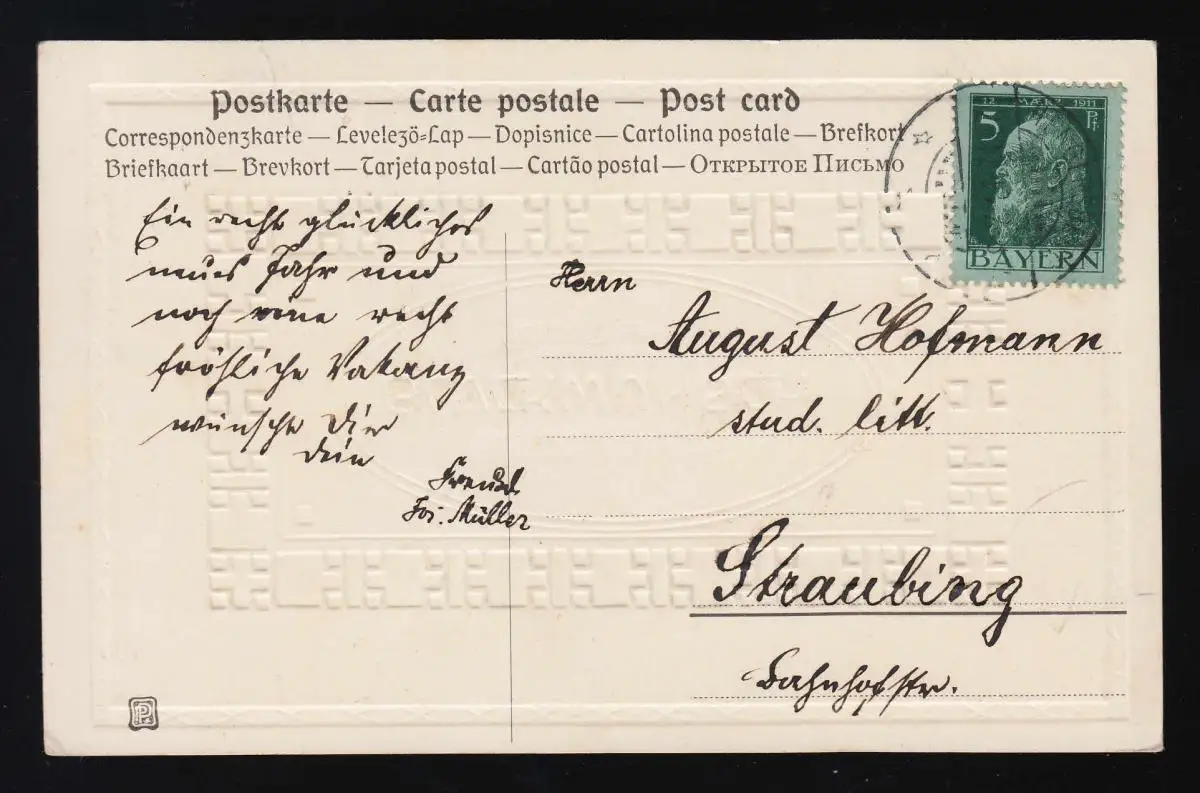 Postkarte — Carte postale — Post card
Correspondenzkarte — Levelezö-Lap — Dopisnice — Cartolina postale — Brefkort
Briefkaart — Brevkort — Tarjeta postal — Cartão postal — Открытое Письмо
12. MÄRZ 1911
5 Pf.
BAYERN
Ein recht glückliches
neues Jahr und
noch eine recht
fröhliche Vakanz
wünscht Dir
Dein
Freund
Jos. Müller
Herrn
August Hofmann
stud. litt.
Straubing
Bahnhofstr.